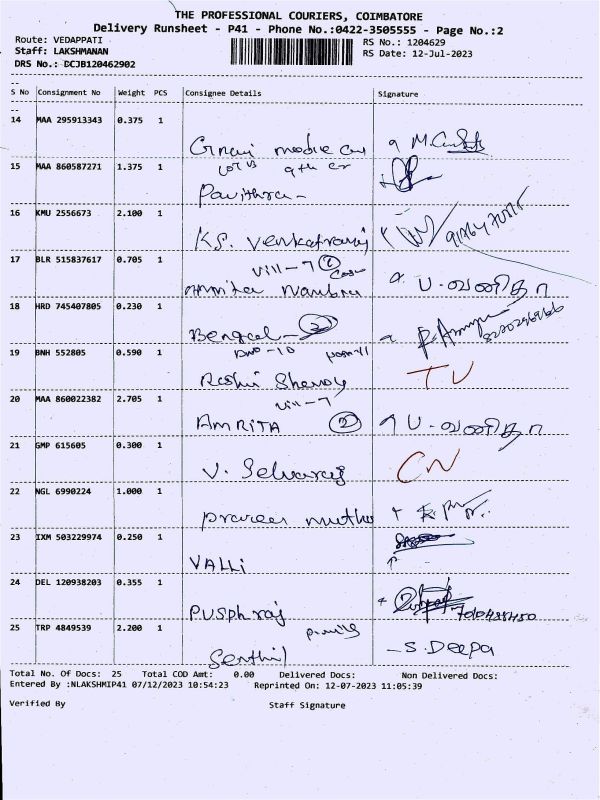 THE PROFESSIONAL COURIERS, COIMBATORE
Delivery Runsheet - P41 - Phone No.:0422-3505555 - Page No.:2
Route: VEDAPPATI
RS No.: 1204629
Staff: LAKSHMANAN
RS Date: 12-Jul-2023
DRS No.: DCJB120462902
S No Consignment No Weight PCS Consignee Details Signature
14 MAA 295913343 0.375 1
15 MAA 860587271 1.375 1
Pavithra
16 KMU 2556673 2.100 1
KP. Venkatraj
17 BLR 515837617 0.705 1
Vill-7 2
Amrita U. வனிதா
18 HRD 745407805 0.230 1
Bengal 2
19 BNH 552805 0.590 1
Rashi Shenoy TV
Vill-7
20 MAA 860022382 2.705 1
AMRITA 2 U. வனிதா
21 GMP 615605 0.300 1
V. Selvaraj CN
22 NGL 6990224 1.000 1
praveen muthu
23 IXM 503229974 0.250 1
VALLi
24 DEL 120938203 0.355 1
PUSPhraj
25 TRP 4849539 2.200 1
Senthil S. Deepa
Total No. Of Docs: 25 Total COD Amt: 0.00 Delivered Docs: Non Delivered Docs:
Entered By :NLAKSHMIP41 07/12/2023 10:54:23 Reprinted On: 12-07-2023 11:05:39
Verified By Staff Signature